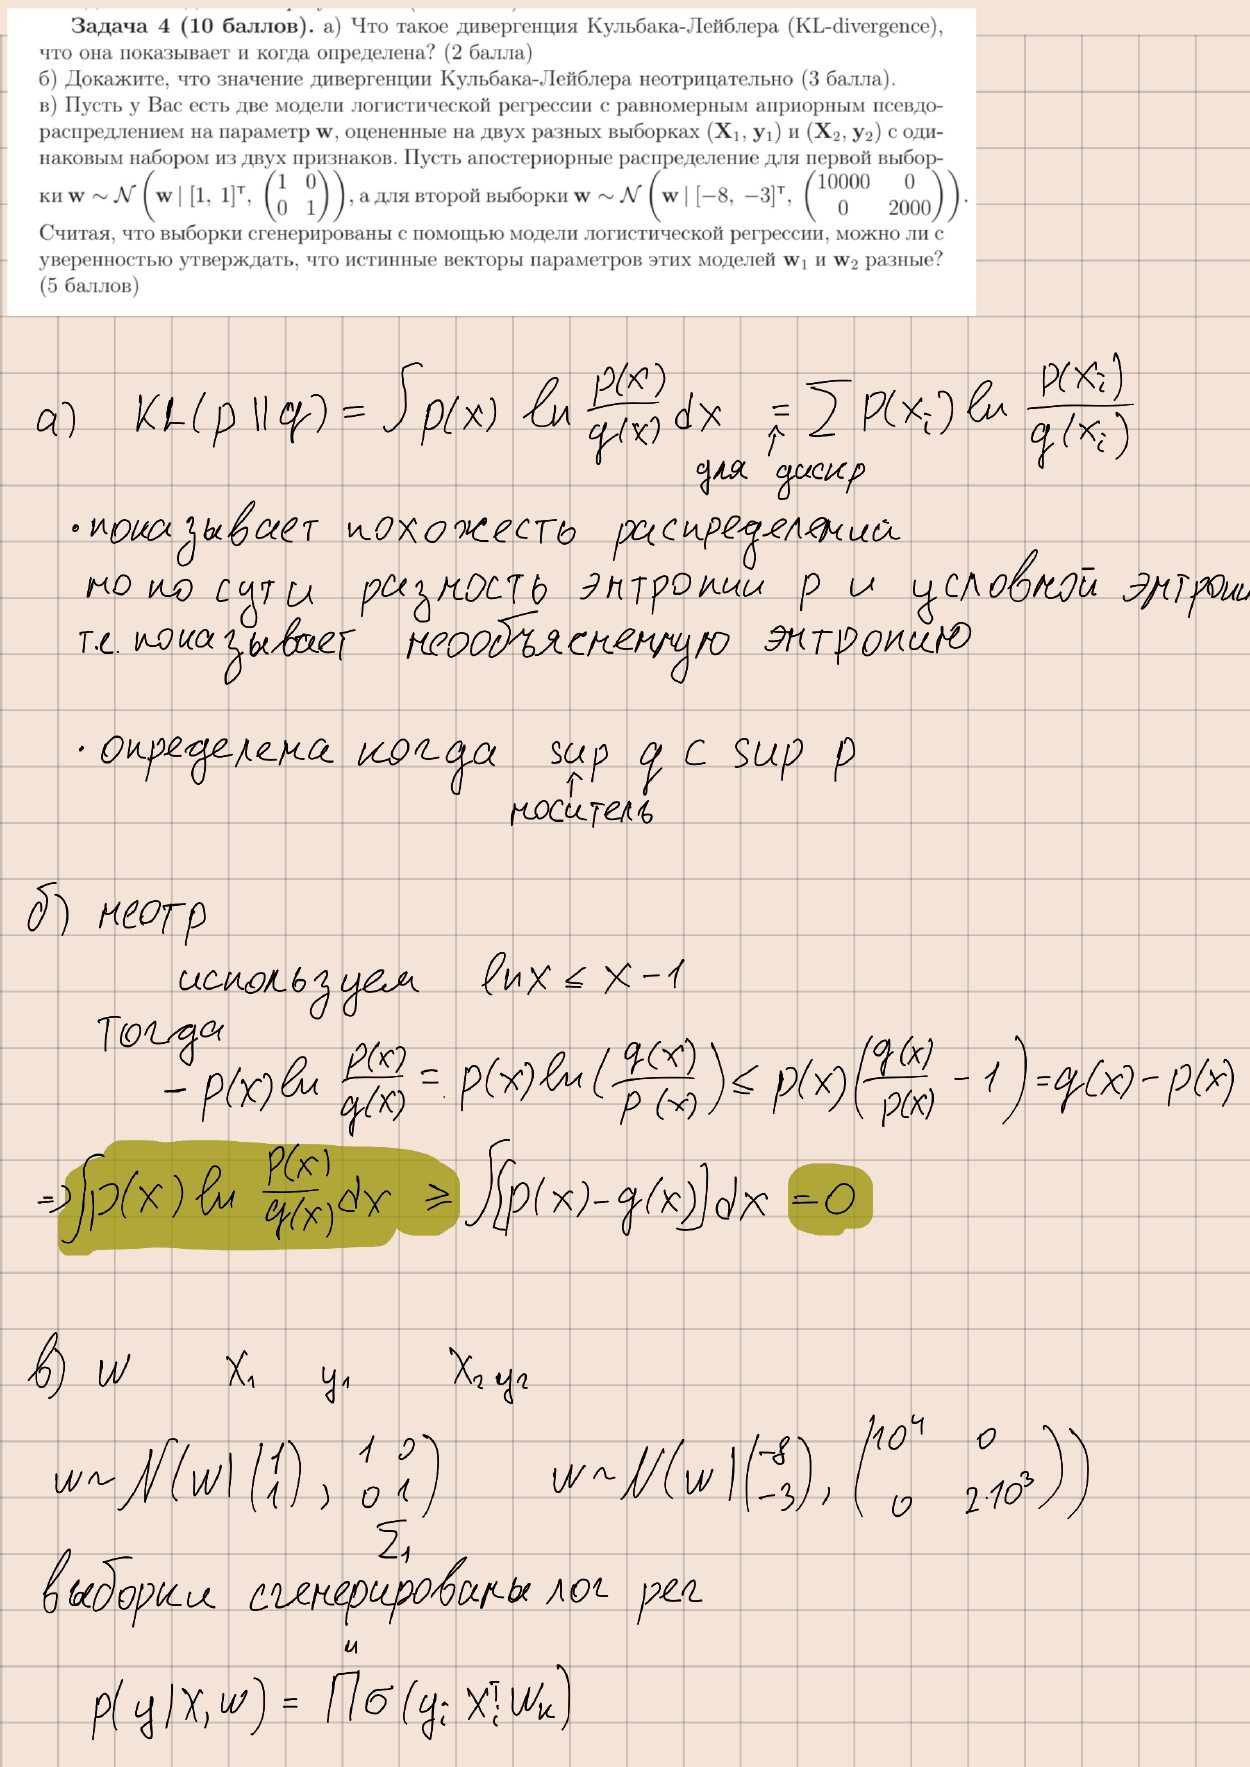 Задача 4 (10 баллов). а) Что такое дивергенция Кульбака-Лейблера (KL-divergence),
что она показывает и когда определена? (2 балла)
б) Докажите, что значение дивергенции Кульбака-Лейблера неотрицательно (3 балла).
в) Пусть у Вас есть две модели логистической регрессии с равномерным априорным псевдо-
распредлением на параметр w, оцененные на двух разных выборках (X₁, y₁) и (X₂, y₂) с оди-
наковым набором из двух признаков. Пусть апостериорные распределение для первой выбор-
ки w ∼ N (w | [1, 1]ᵀ, (1 0 0 1)), а для второй выборки w ∼ N (w | [−8, −3]ᵀ, (10000 0 0 2000)).
Считая, что выборки сгенерированы с помощью модели логистической регрессии, можно ли с
уверенностью утверждать, что истинные векторы параметров этих моделей w₁ и w₂ разные?
(5 баллов)
а) KL(p || q) = ∫ p(x) ln p(x)/q(x) dx = ∑ p(xᵢ) ln p(xᵢ)/q(xᵢ)
↑
для дискр
· показывает похожесть распределений
но по сути разность энтропии p и условной
т.е. показывает необъясненную энтропию
· определена когда sup q ⊂ sup p
↑
носитель
б) неотр
используем ln x ≤ x − 1
Тогда
− p(x) ln p(x)/q(x) = p(x) ln (q(x)/p(x)) ≤ p(x) (q(x)/p(x) − 1) = q(x) − p(x)
⇒ ∫ p(x) ln p(x)/q(x) dx ≥ ∫[p(x) − q(x)] dx = 0
в) w X₁ y₁ X₂ y₂
w ~ N(w | (1 1), 1 0 0 1) w ~ N(w | (−8 −3), (10⁴ 0 0 2·10³))
Σ₁
выборки сгенерированы лог рег
p(y | X, w) = ∏ σ(yᵢ xᵢᵀ wₖ)